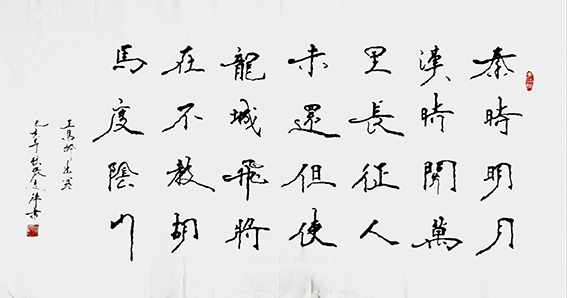 秦時明月
漢時關萬
里長征人
未還但使
龍城飛將
在不教胡
馬度陰山
王昌齡出塞
己亥年